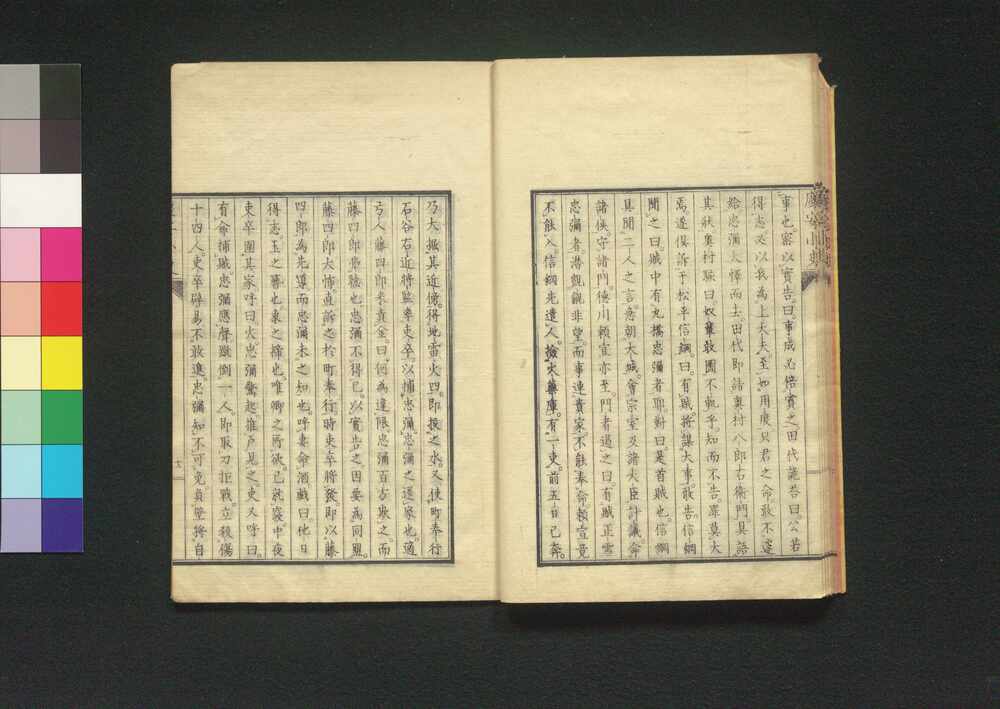 事也密以實告曰事成必倍賞之田代詭答曰公若
得志必以我為上大夫至如用度只君之命敢不遂
給忠彌大懌而去田代即詣奥村八郎右衛門具語
其狀奥村駭曰奴輩敢圖不軌乎知而不告罪莫大
焉遂俱訴于松平信綱曰有賊將謀大事敢告信綱
聞之曰賊中有丸橋忠彌者耶對曰是首賊也信綱
具聞二人之言急朝大城會宗室及諸大臣計議命
諸侯守諸門德川頼宣亦至門者遏之曰有賊正雪
忠彌者潜覬覦非望而事連貴家不能奉命頼宣竟
不能入信綱先遣人撿火藥庫有一吏前五日已奔
乃大搜其近傍得地雷火四即投之水又使町奉行
石谷右近將監率吏卒以捕忠彌忠彌之逐麋也適
亡人藤四郎來責金曰何為違限忠彌百方欺之而
藤四郎弗聽也忠彌不得已以實告之因要為同盟
藤四郎大怖直訴之於町奉行時吏卒將發即以藤
四郎為先導而忠彌未之知也呼妻命酒戲曰他日
得志玉之簪也東之褥也唯卿之所欲已就寢中夜
吏卒圍其家呼曰火忠彌驚起推戶見之吏又呼曰
有命捕賊忠彌應聲蹴倒一人即取刀拒戰立殺傷
十四人吏卒辟易不敢進忠彌知不可免負壁將自